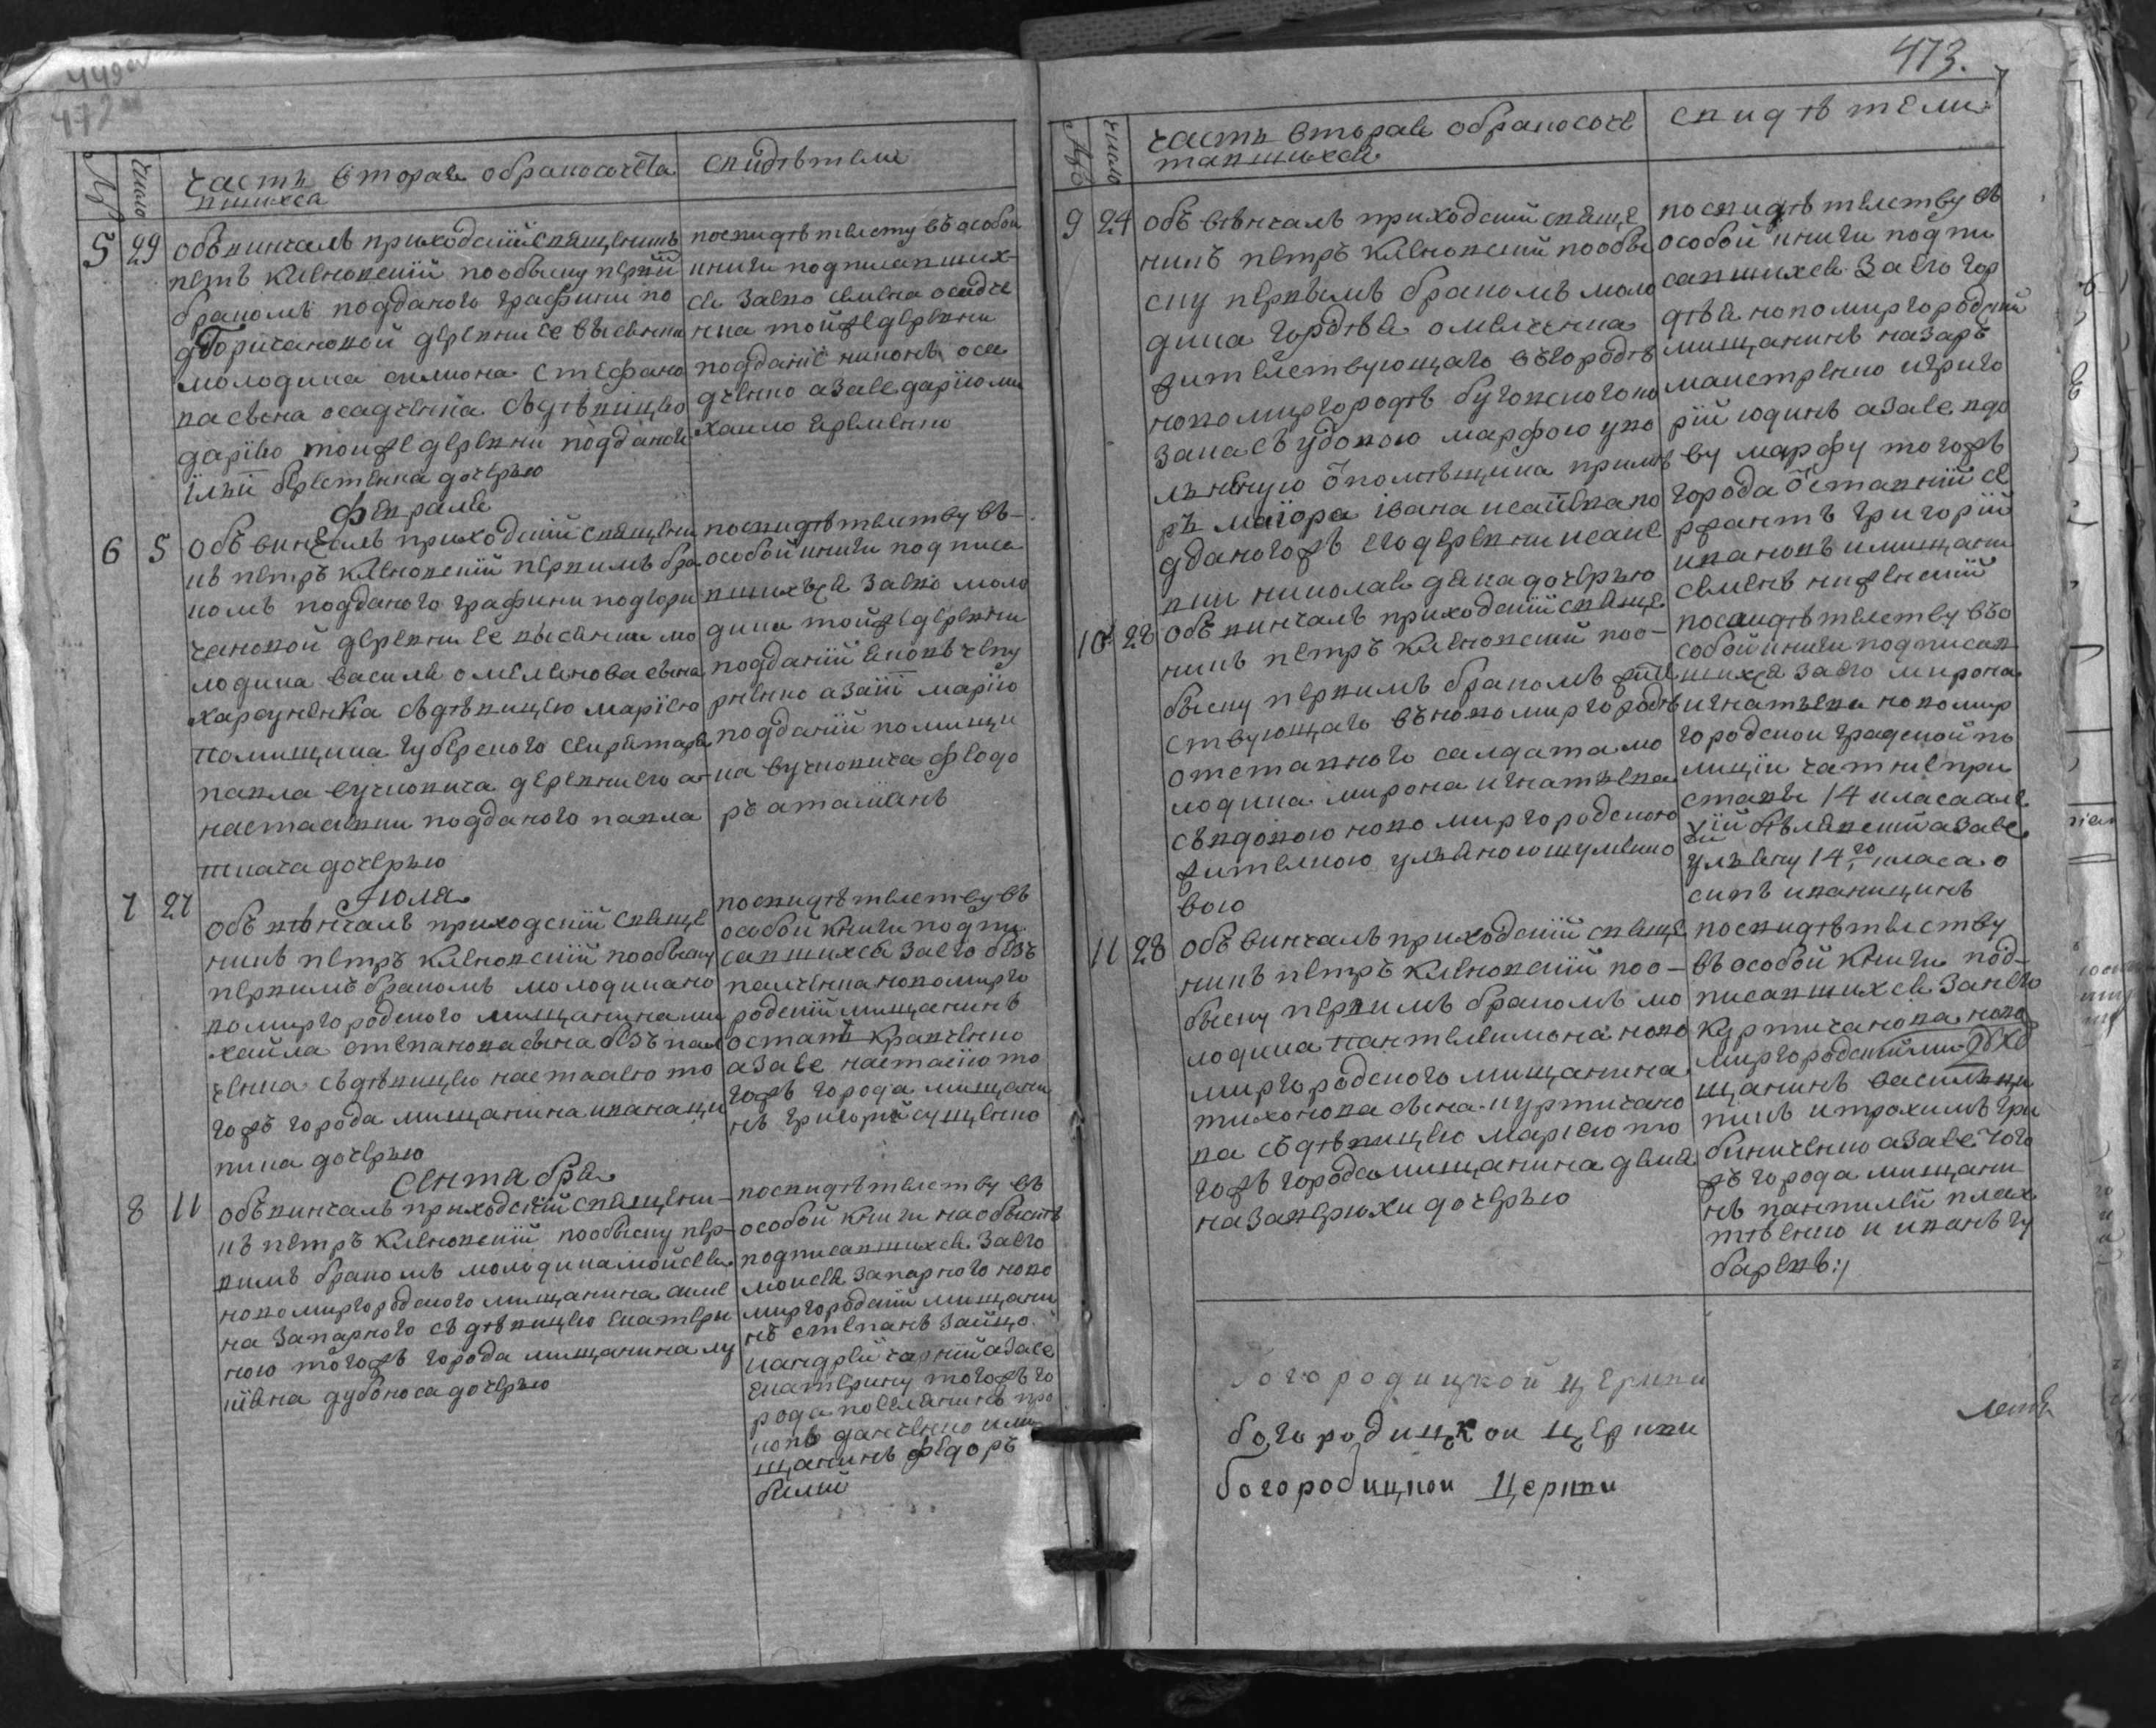 449 об
472
№
число
часть вторая обракосочета
вшихся
свидѣтели
5
29
объвинчалъ приходскій священикъ
петъ клѣновскій пообыску первій
бракомъ подданого графини по
дгоричановой деревни се высѣнки
молодика симиона стефано
ва сына осадченка съдѣвицею
дарією тойже деревни подданого
їлъи берестенка дочерью
посвидѣтелсту въособой
книги подписавших
ся заево симена осадче
нка тойже деревни
подданіе никонъ оса
дченко азанея дарїю ми
хаило еременко
февраля
6
5
объвинчалъ приходскій священи
къ петръ клѣновскій первимъ бра
комъ подданого графини подгори
чановой деревни се висѣнки мо
лодика василя омеленова сына
харсунѣнка съдѣвицею марїею
помищика губерского секритаря
павла вучковича деревниего а
настасївки подданого павла
ткача дочерью
посвидѣтелству въ
особой книги подписа
вшихъся заево моло
дика тойже деревни
подданій яковъ чепу
рненко азанїй марїю
подданій помищи
ка вучковича феодо
ръ атаманъ
Июля
7
27
объвѣнчалъ приходскій свяще
никъ петръ клѣновскій пообыску
первимъ бракомъ молодикано
вомиргородского мищанинами
хаила степанова сына безъпал
ченка съдѣвицею настасїею то
гожъ города мищанина иванаци
пика дочерью
посвидѣтелству въ
особой книги подпи
савшихся заего безъ
палченка новомирго
родскій мищанинъ
остапъ кравченко
азанее настасїю то
гожъ города мищани
нъ григорій сущенко
сентабря
8
11
объвинчалъ прыходскій священи
къ петръ клѣновскій пообыску пер
вимъ бракомъ молодикамойсея
новомиргородского мищанина симе
на запарного съ дѣвицею екатери
ною тогожъ города мищанина лу
кіяна дубоноса дочерью
посвидѣтелству въ
особой книги наобыскѣ
подписавшихся заего
моисея запарного ново
миргородскій мищани
нъ степанъ зайцо
иандрей чарній азанее
екатерину тогожъго
рода поселянинъ про
копъ данченко ими
щанинъ федоръ
билий
473.
№
число
часть вторая обракосоче
тавшихся
свидѣтели
9
24
объ вѣнчалъ приходский свяще
никъ петръ клѣновский пообы
ску первымъ бракомъ моло
дика гордѣя омелченка
жителствующаго въгородѣ
новомиргородѣ бугоского ко
зака съ удовою марфою уво
лъненую ōпомѣщика примѣ
ръ маїора івана исаїева по
даногожъ егодеревни исаие
вки николая дяка дочерью
посвидѣтелству въ
особой книги подпи
савшихся заего гор
дѣя новомиргородкий
мищанинъ назаръ
майстренко игриго
рїй юдинъ азанее вдо
ву марфу тогожъ
города ōставній се
ржантъ григорій
ивановъ имищани
семенъ нижинский
10
28
объ винчалъ приходскїй свяще
никъ петръ клѣновский поо
быску первимъ бракомъ жите
ствующаго въновомиргородѣ
отставного салдата мо
лодика мирона игнатъева
съвдовою новомиргородскою
жителкою улъяною шулико
вою
посвидѣтелству въо
собой книги подписав
шихся заего мирона
игнатъева новомир
городской градской по
лиции частній при
ставъ 14 класа але
ѯїй бѣлявский азанее
улъяну 14го класа о
сипъ иваницинъ
11
28
объ винчалъ приходскій свяще
никъ петръ клѣновскій поо
быску первимъ бракомъ мо
лодика пантелимона ново
миргородского мищанина
тихонова сына куртичано
ва съдѣвицею марїею то
гожъ города мищанина деми
на заверюхи дочерью
посвидѣтелству
въ особой книги под
писавшихся занего
куртичанова ново
миргородский ми
щанинъ василъ ци
пикъ итрохимъ гри
биниченко азанее того
жъ города мищани
нъ пантилей плах
тѣенко и иванъ гу
баревъ:/
богородицкой церкви
богородицкой церкви
богородицкои Церкви